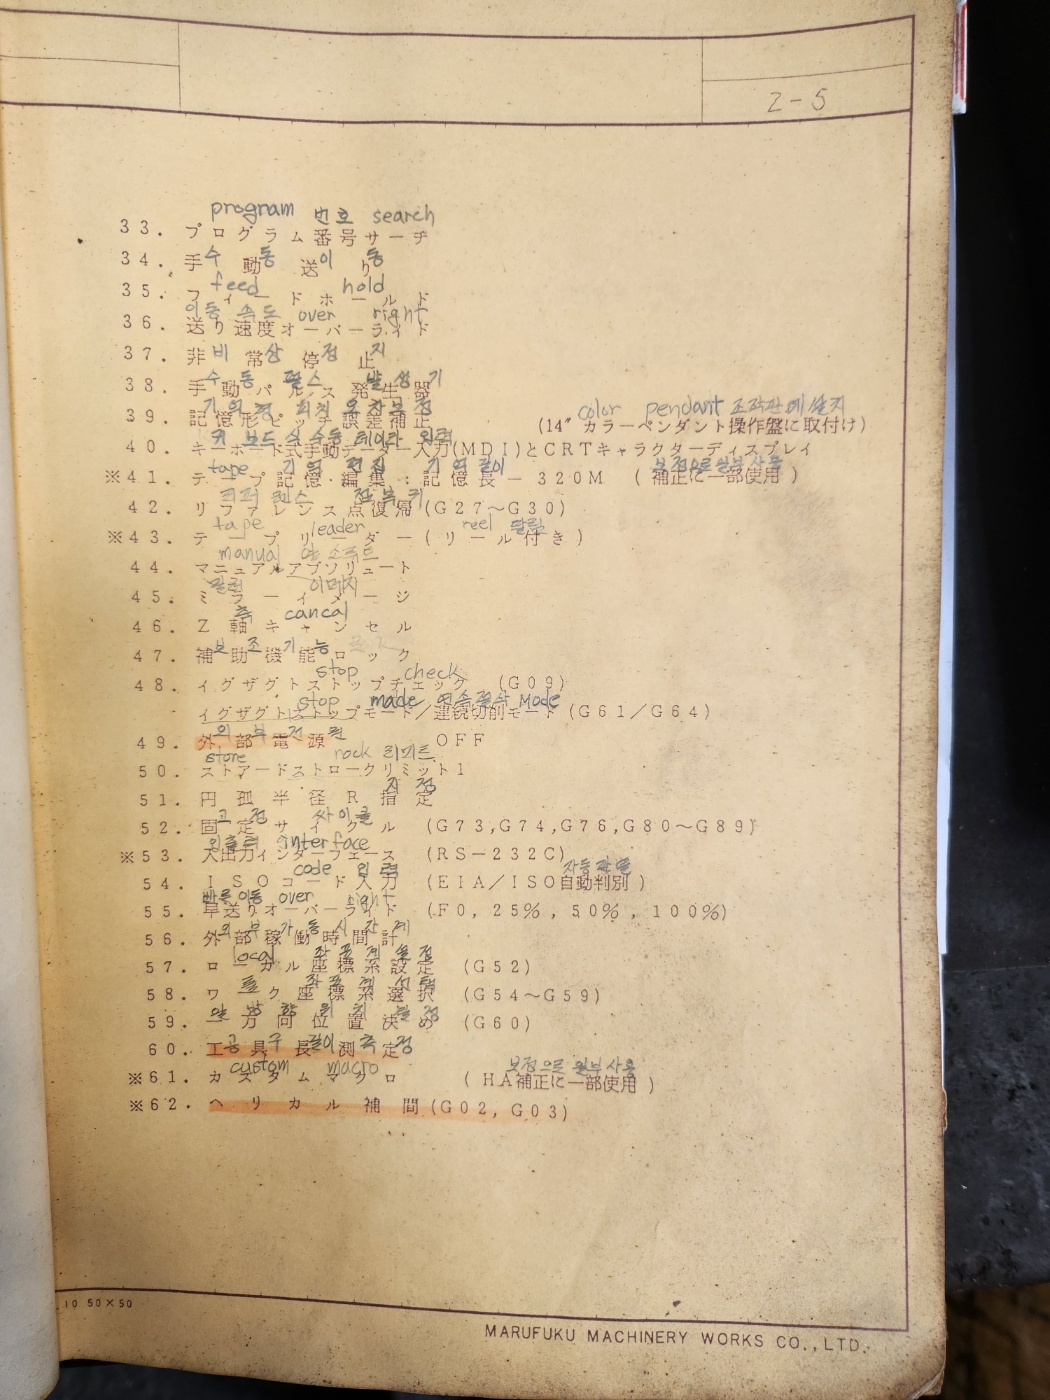 2-5
program 번호 search
33. プログラム番号サーチ
수 동 이 동
34. 手動送り
feed hold
35. フィードホールド
이동 속도 over right
36. 送り速度オーバーライド
비 상 정 지
37. 非常停止
수동 펄스 발생기
38. 手動パルス発生器
기억형 피치 오차보정
39. 記憶形ピッチ誤差補正
color pendant 조작판에 설치
(14″カラーペンダント操作盤に取付け)
키보드식 수동 데이타 입력
40. キーボード式手動データー入力(MDI)とCRTキャラクターディスプレイ
tape 기억 편집 기억길이 보정으로 일부 사용
※41. テープ記憶・編集:記憶長-320M (補正に一部使用)
42. リファレンス点復帰(G27～G30)
tape leader reel 딸림
※43. テープリーダー(リール付き)
manual
44. マニュアルアブソリュート
이메지
45. ミラーイメージ
축 cancal
46. Z軸キャンセル
보 조 기 능
47. 補助機能ロック
stop check
48. イグザグトストップチェック (G09)
stop made 연속절삭 Mode
イグザグトストップモード/連続切削モード(G61/G64)
외 부 전 원
49. 外部電源 OFF
store rock 리미트
50. ストアードストロークリミット1
지 정
51. 円弧半径R指定
고 정 싸이클
52. 固定サイクル (G73,G74,G76,G80～G89)
입출력 interface
※53. 入出力インターフェース (RS-232C)
code 입력 자동판별
54. ISOコード入力 (EIA/ISO自動判別)
빠른이동 over right
55. 早送りオーバーライド (F0, 25%, 50%, 100%)
외 부 가 동 시 간 계
56. 外部稼働時間計
local 좌표계 설정
57. ローカル座標系設定 (G52)
좌표계 선택
58. ワーク座標系選択 (G54～G59)
방 향 위 치
59. 一方向位置決め (G60)
공 구 길이 측 정
60. 工具長測定
custom macro 보정으로 일부사용
※61. カスタムマクロ (HA補正に一部使用)
※62. ヘリカル補間(G02, G03)
10 50×50
MARUFUKU MACHINERY WORKS CO.,LTD.